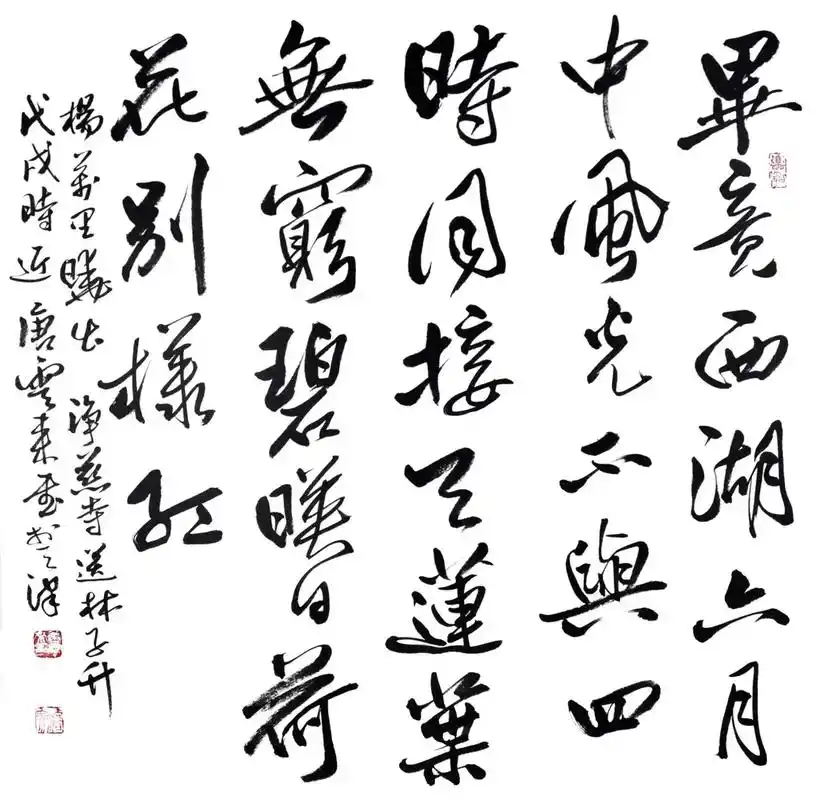 畢竟西湖六月
中風光不與四
時同接天蓮葉
無窮碧暎日荷
花別樣紅
楊萬里曉出淨慈寺送林子升
戊戌時近唐雲來書於天津